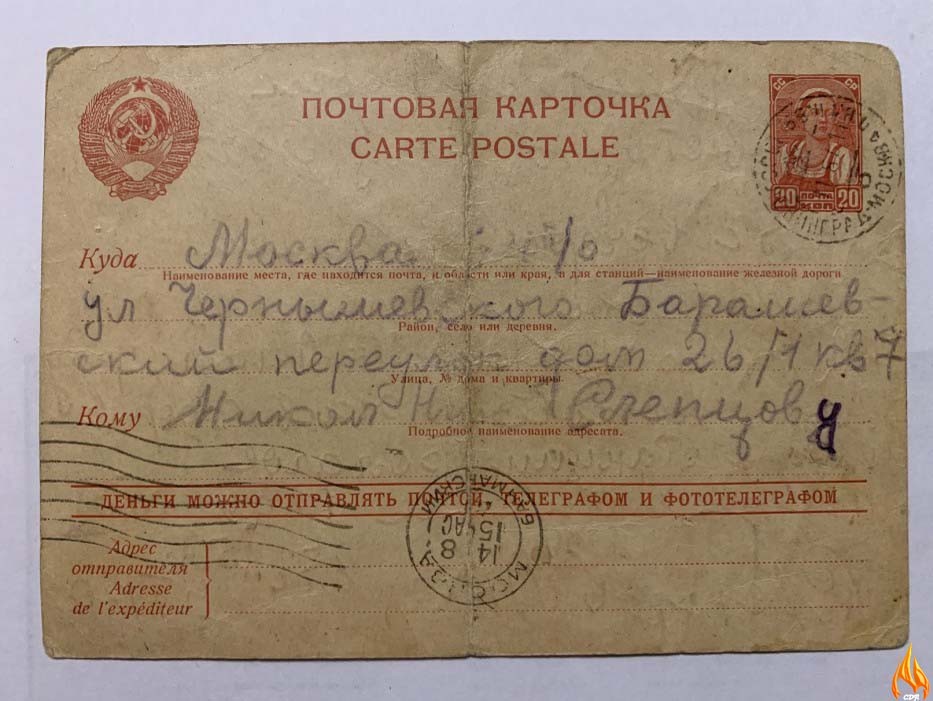 ПОЧТОВАЯ КАРТОЧКА
CARTE POSTALE
СС СР
20 ПОЧТА КОП 20
Куда Москва
Наименование места, где находится почта, и области или края, а для станций—наименование железной дороги
ул Чернышевского Барашев-
Район, село или деревня.
ский переулок дом 26/1 кв 7
Улица, № дома и квартиры.
Кому Слепцову
Подробное наименование адресата.
ДЕНЬГИ МОЖНО ОТПРАВЛЯТЬ ПОЧТОЙ, ТЕЛЕГРАФОМ И ФОТОТЕЛЕГРАФОМ
МОСКВА
БАУМАНСКИЙ
14 8
15 ЧАС
Адрес
отправителя
Adresse
de l'expéditeur
CDJI